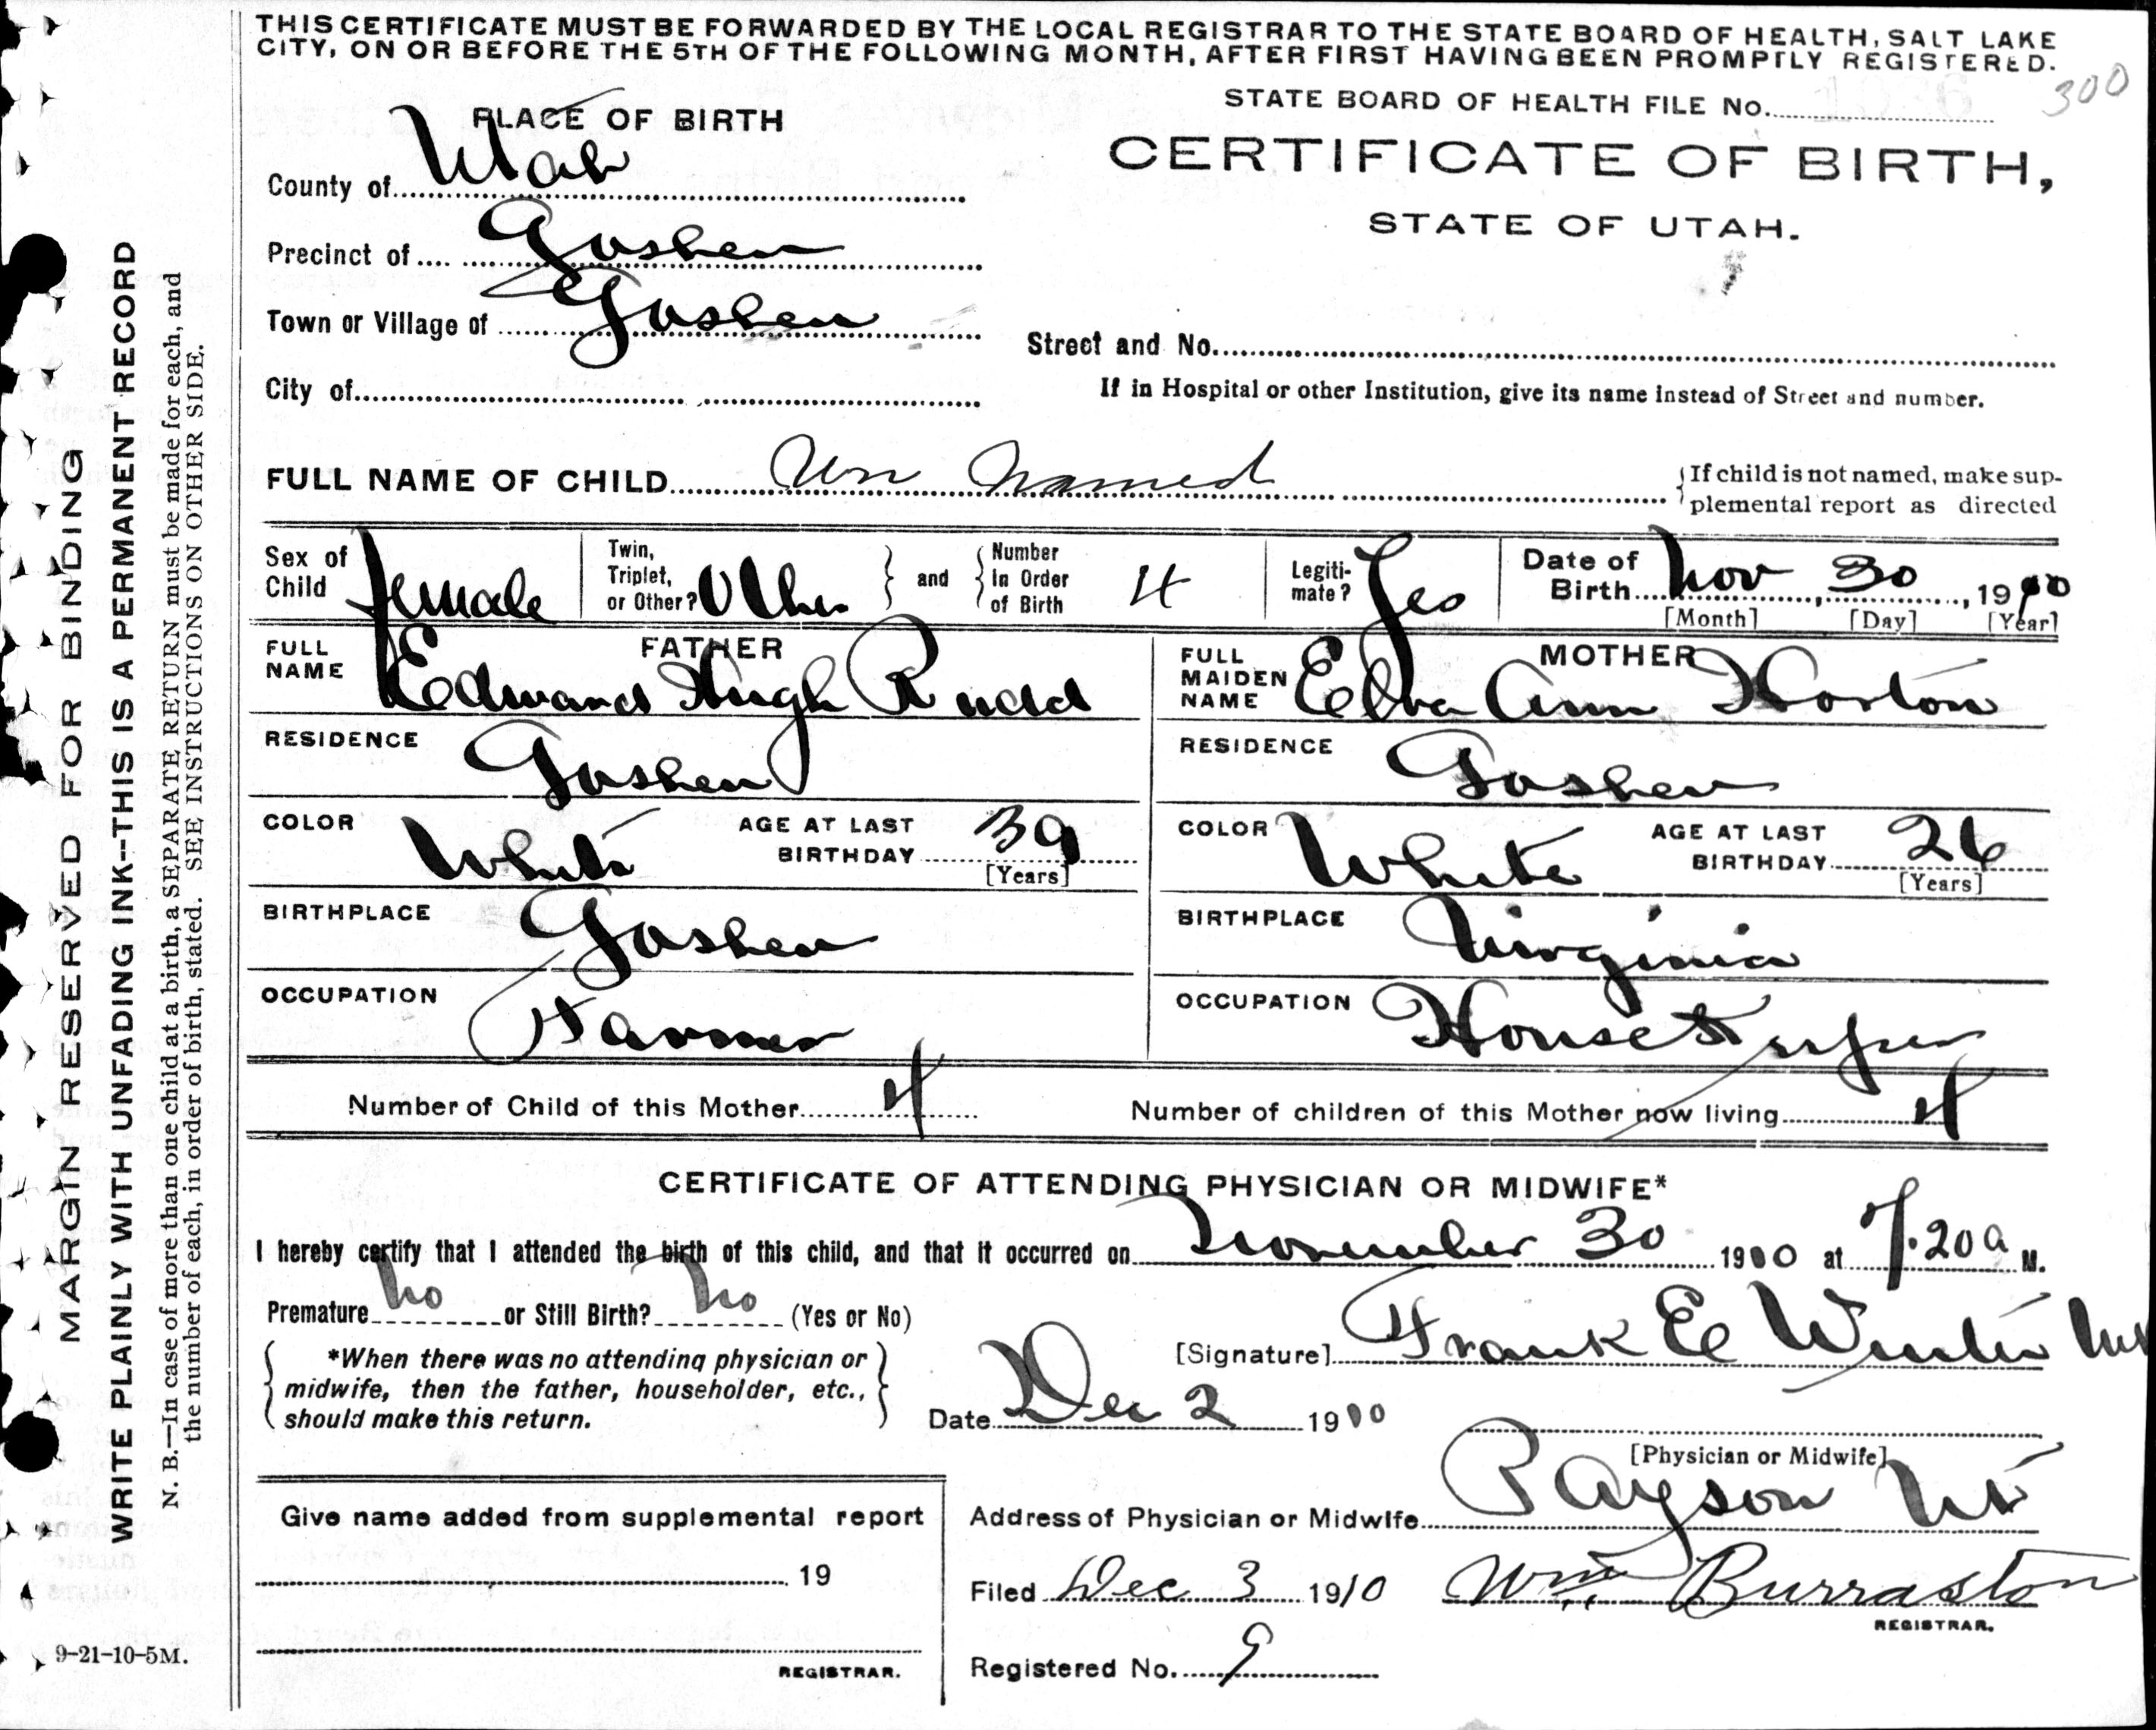 THIS CERTIFICATE MUST BE FORWARDED BY THE LOCAL REGISTRAR TO THE STATE BOARD OF HEALTH, SALT LAKE
CITY, ON OR BEFORE THE 5TH OF THE FOLLOWING MONTH, AFTER FIRST HAVING BEEN PROMPTLY REGISTERED.
STATE BOARD OF HEALTH FILE No. 300
PLACE OF BIRTH
CERTIFICATE OF BIRTH,
STATE OF UTAH.
County of Utah
Precinct of Goshen
Town or Village of Goshen
Street and No.
City of
If in Hospital or other Institution, give its name instead of Street and number.
FULL NAME OF CHILD Un Named
If child is not named, make sup-
plemental report as directed
Sex of Child female
Twin, Triplet, or Other? Other
and Number in Order of Birth 4
Legiti-mate? Yes
Date of Birth Nov 30, 1910
[Month] [Day] [Year]
FATHER
FULL NAME Edward Hugh Rudd
RESIDENCE Goshen
COLOR White AGE AT LAST BIRTHDAY 39
[Years]
BIRTHPLACE Goshen
OCCUPATION Farmer
MOTHER
FULL MAIDEN NAME Elva Ann Horton
RESIDENCE Goshen
COLOR White AGE AT LAST BIRTHDAY 26
[Years]
BIRTHPLACE Virginia
OCCUPATION House Keeper
Number of Child of this Mother 4
Number of children of this Mother now living 4
CERTIFICATE OF ATTENDING PHYSICIAN OR MIDWIFE*
I hereby certify that I attended the birth of this child, and that it occurred on November 30 1910 at 7.20 a M.
Premature no or Still Birth? no (Yes or No)
*When there was no attending physician or
midwife, then the father, householder, etc.,
should make this return.
[Signature] Frank E
Date Dec 2 1910
[Physician or Midwife]
Address of Physician or Midwife Payson Ut
Give name added from supplemental report
19
REGISTRAR.
Filed Dec 3 1910 Wm Burraston
REGISTRAR.
Registered No. 9
9-21-10-5M.
MARGIN RESERVED FOR BINDING
WRITE PLAINLY WITH UNFADING INK--THIS IS A PERMANENT RECORD
N. B.—In case of more than one child at a birth, a SEPARATE RETURN must be made for each, and
the number of each, in order of birth, stated. SEE INSTRUCTIONS ON OTHER SIDE.